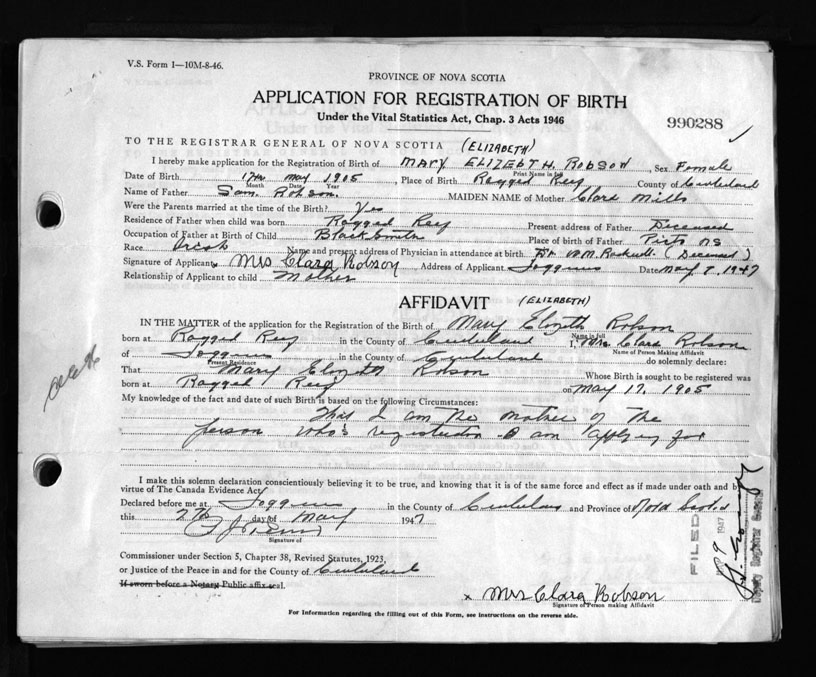 V.S. Form 1—10M-8-46.
PROVINCE OF NOVA SCOTIA
APPLICATION FOR REGISTRATION OF BIRTH
Under the Vital Statistics Act, Chap. 3 Acts 1946
990288 ✓
TO THE REGISTRAR GENERAL OF NOVA SCOTIA (ELIZABETH)
I hereby make application for the Registration of Birth of MARY ELIZEBTH. ROBSON Sex Female
Print Name in full
Date of Birth 17th May 1905 Place of Birth Ragged Reef County of Cumberland
Month Date Year
Name of Father Sam. Robson. MAIDEN NAME of Mother Clara Mills
Were the Parents married at the time of the Birth? Yes
Residence of Father when child was born Ragged Reef Present address of Father Deceased
Occupation of Father at Birth of Child BlackSmith Place of birth of Father NS
Race Irish Name and present address of Physician in attendance at birth Dr (Deceased)
Signature of Applicant x Mrs Clara Robson Address of Applicant Joggins Date May 7. 1947
Relationship of Applicant to child Mother
AFFIDAVIT (ELIZABETH)
IN THE MATTER of the application for the Registration of the Birth of Mary Elizeth Robson
Name in full
born at Ragged Reef in the County of Cumberland I, Mrs. Clara Robson
Name of Person Making Affidavit
of Joggins in the County of Cumberland do solemnly declare:
Present Residence
That Mary Elizeth Robson Whose Birth is sought to be registered was
born at Ragged Reef on May 17. 1905
My knowledge of the fact and date of such Birth is based on the following Circumstances:
That I am the mother of the
person who's registration I am applying for
I make this solemn declaration conscientiously believing it to be true, and knowing that it is of the same force and effect as if made under oath and by
virtue of The Canada Evidence Act
Declared before me at Joggins in the County of Cumberland and Province of Nova Scotia
this 7th day of May 1947
Signature of
Commissioner under Section 5, Chapter 38, Revised Statutes, 1923,
or Justice of the Peace in and for the County of Cumberland
If sworn before a Notary Public affix seal.
x Mrs Clara Robson
Signature of Person making Affidavit
For Information regarding the filling out of this Form, see instructions on the reverse side.
FILED
1947
Deputy Registrar General